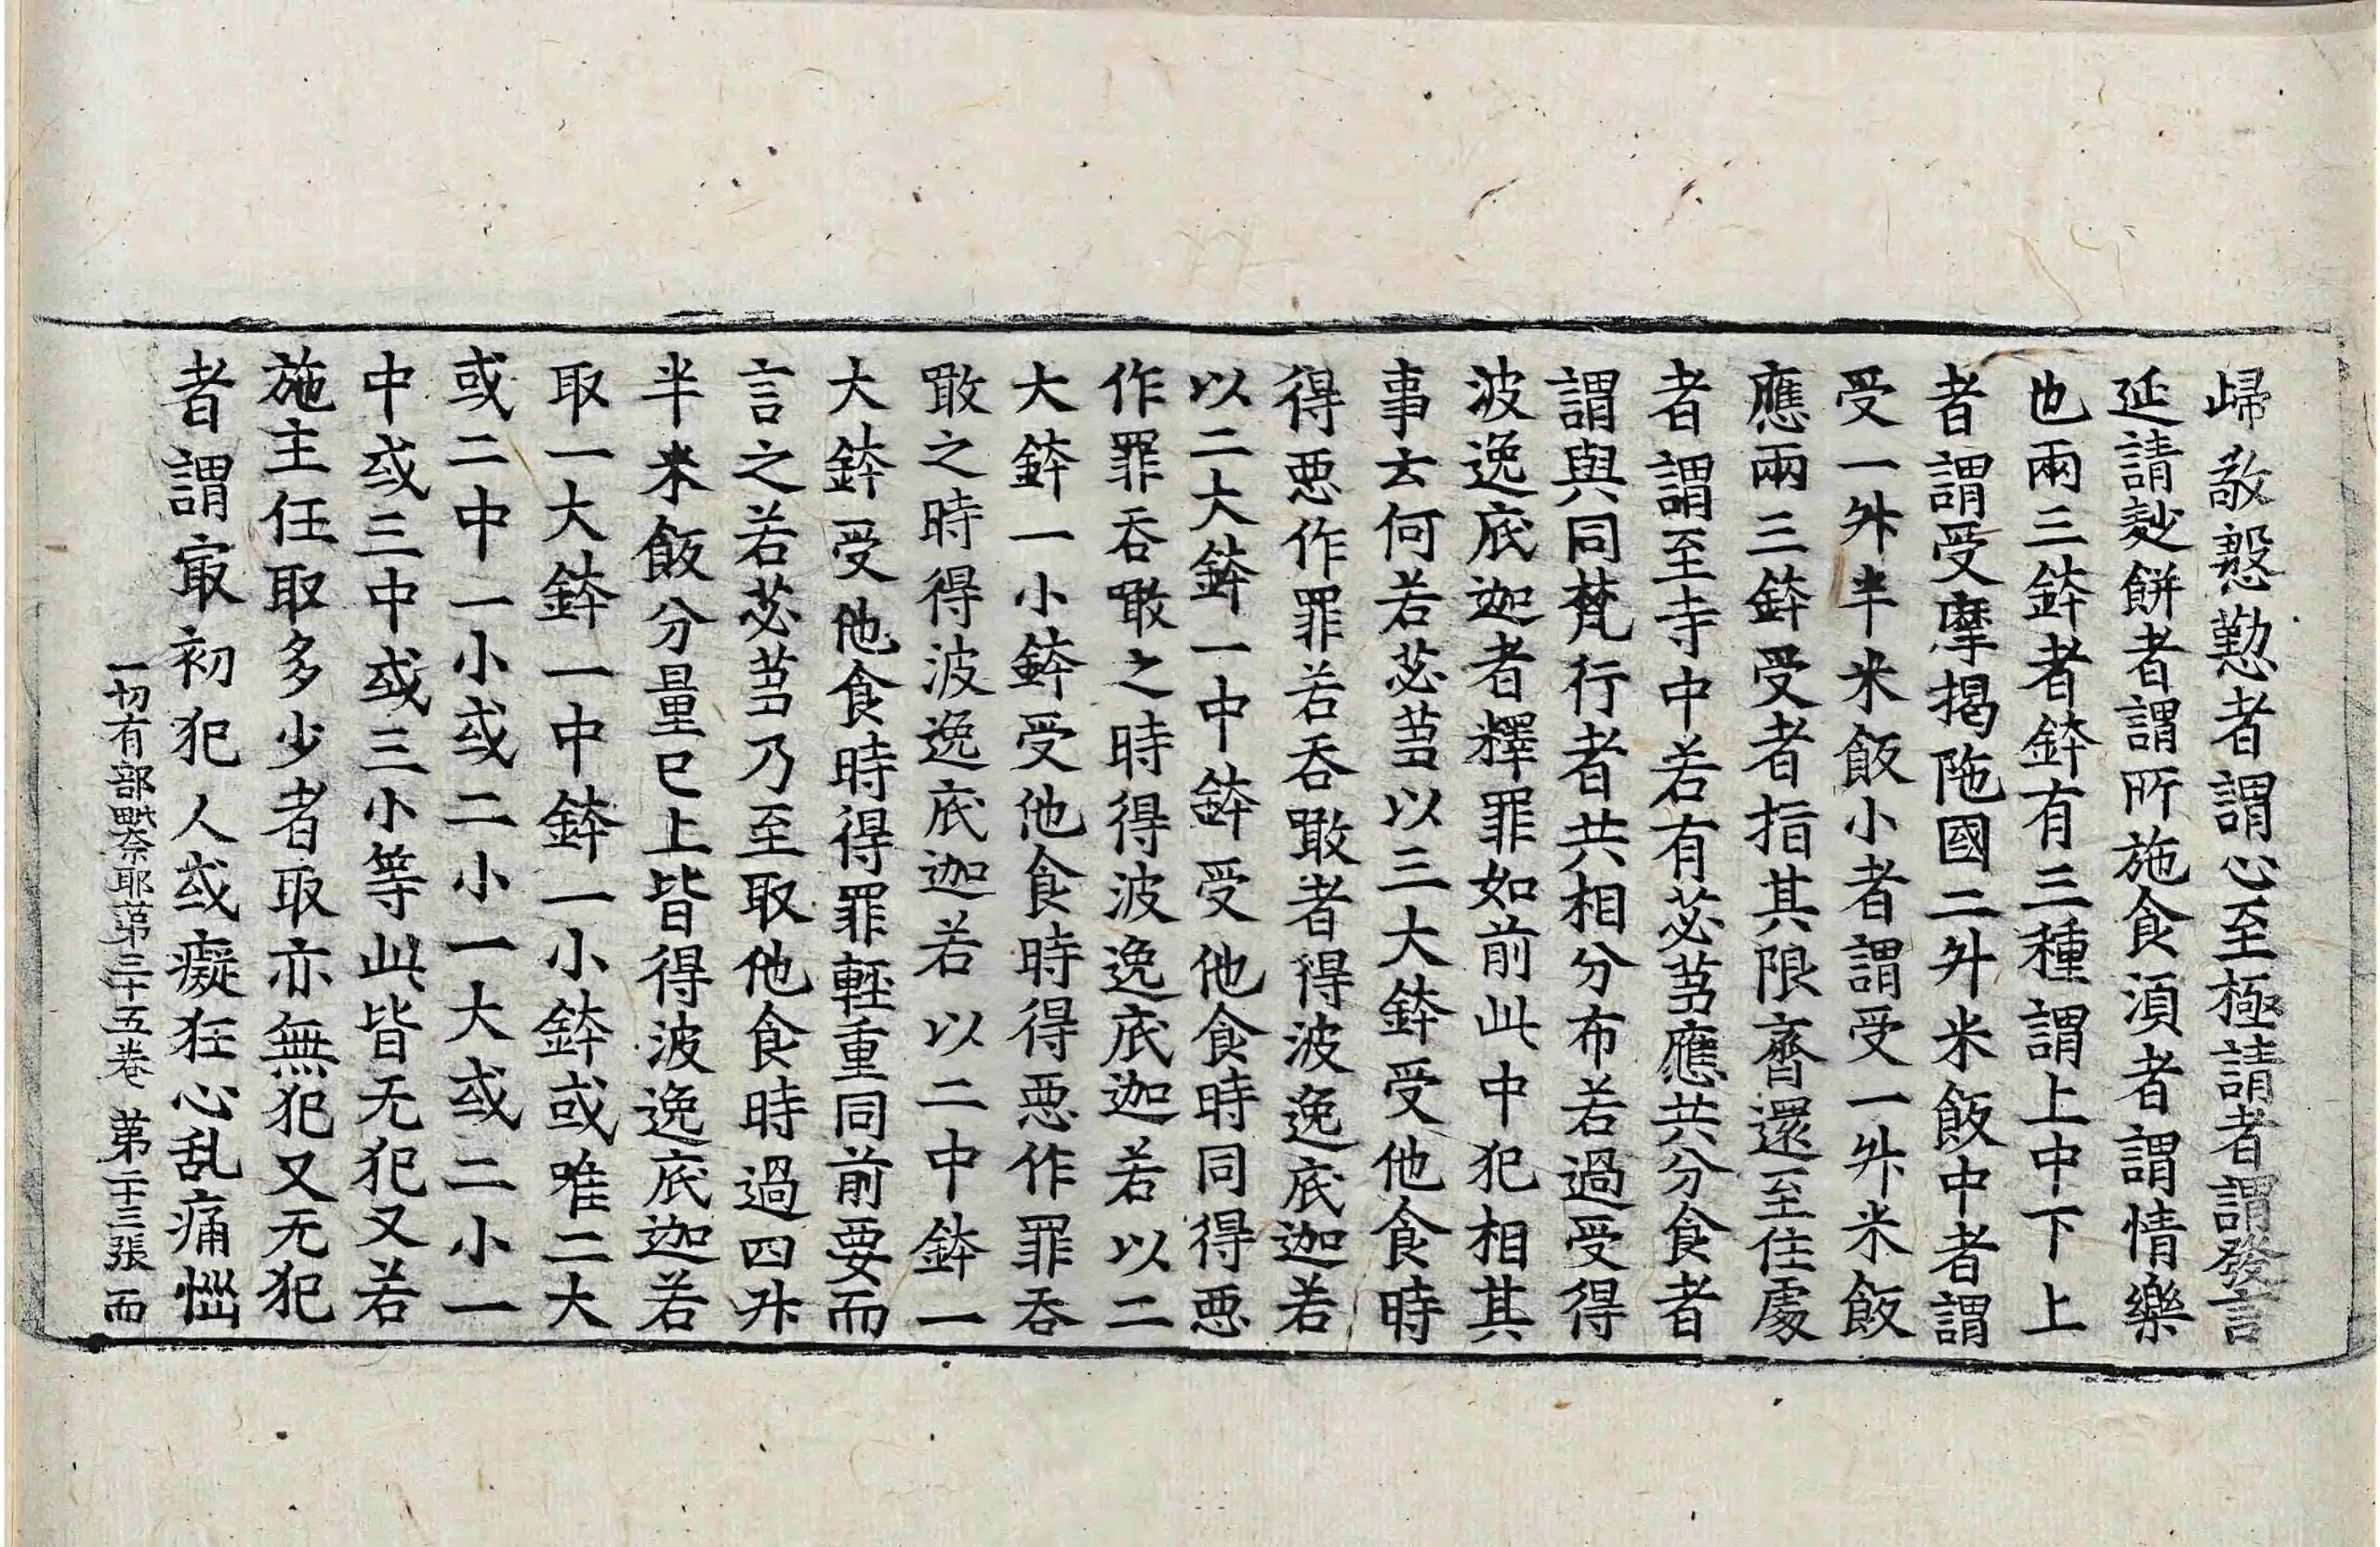 歸敬慇懃者謂心至極請者謂發言
延請麨餅者謂所施食湏者謂情樂
也兩三鉢者鉢有三種謂上中下上
者謂受摩揭陁國二升米飯中者謂
受一升半米飯小者謂受一升米飯
應兩三鉢受者指其限齊還至住處
者謂至寺中若有苾芻應共分食者
謂與同梵行者共相分布若過受得
波逸底迦者釋罪如前此中犯相其
事云何若苾芻以三大鉢受他食時
得惡作罪若吞噉者得波逸底迦若
以二大鉢一中鉢受他食時同得惡
作罪吞噉之時得波逸底迦若以二
大鉢一小鉢受他食時得惡作罪吞
噉之時得波逸底迦若以二中鉢一
大鉢受他食時得罪輕重同前要而
言之若苾芻乃至取他食時過四升
半米飯分量已上皆得波逸底迦若
取一大鉢一中鉢一小鉢或唯二大
或二中一小或二小一大或二小一
中或三中或三小等此皆无犯又若
施主任取多少者取亦無犯又无犯
者謂冣初犯人或癡狂心乱痛惱
一切有部毗奈耶苐三十五卷 苐二十三張 而